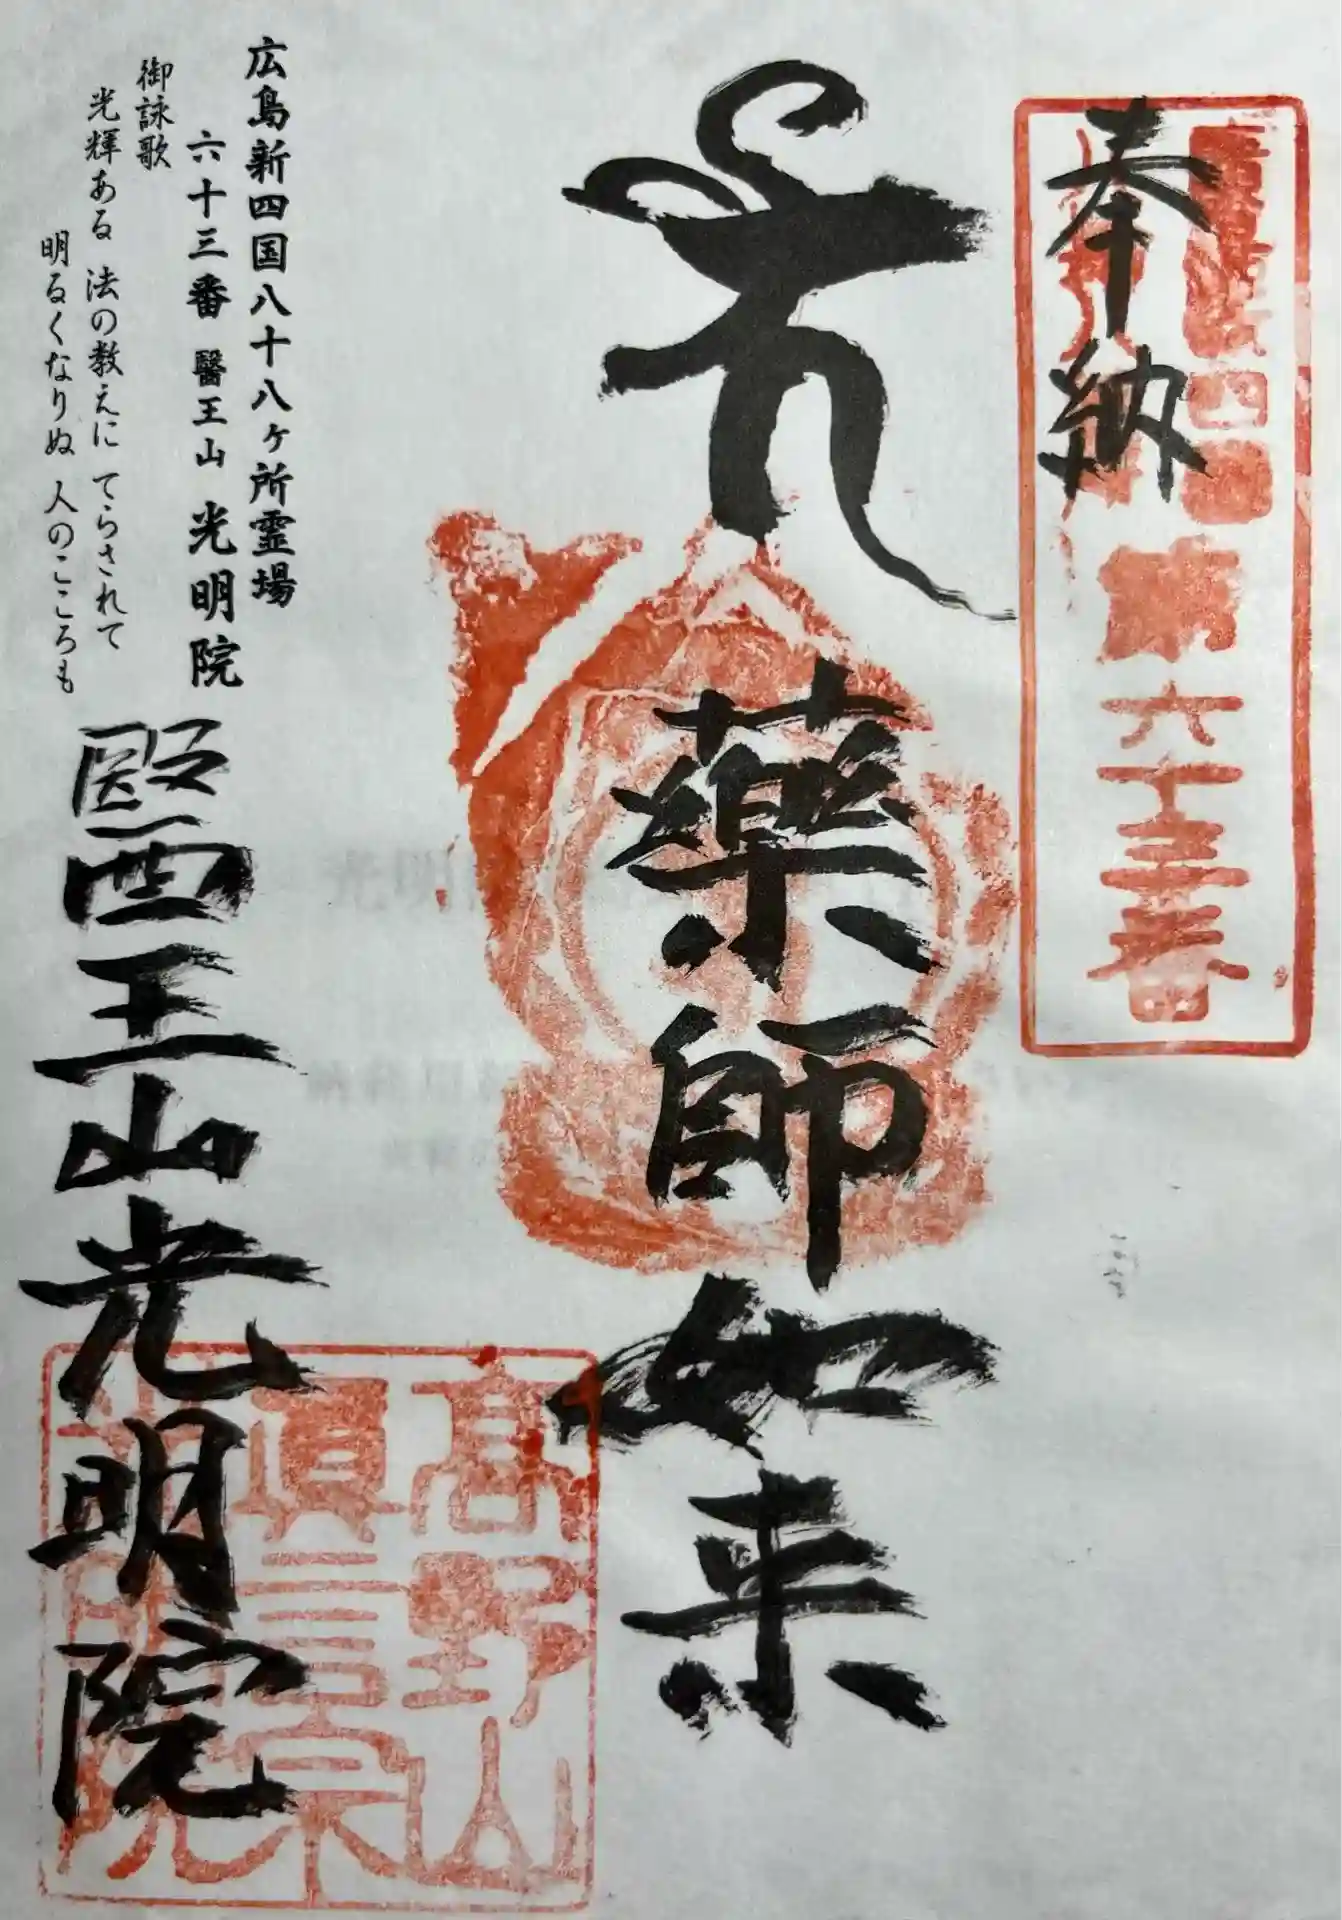 奉納
第六十三番
薬師如来
広島新四国八十八ヶ所霊場
六十三番 醫王山 光明院
御詠歌
光輝ある 法の教えに てらされて
明るくなりぬ 人のこころも
醫王山光明院
高野山
眞言宗
光明院